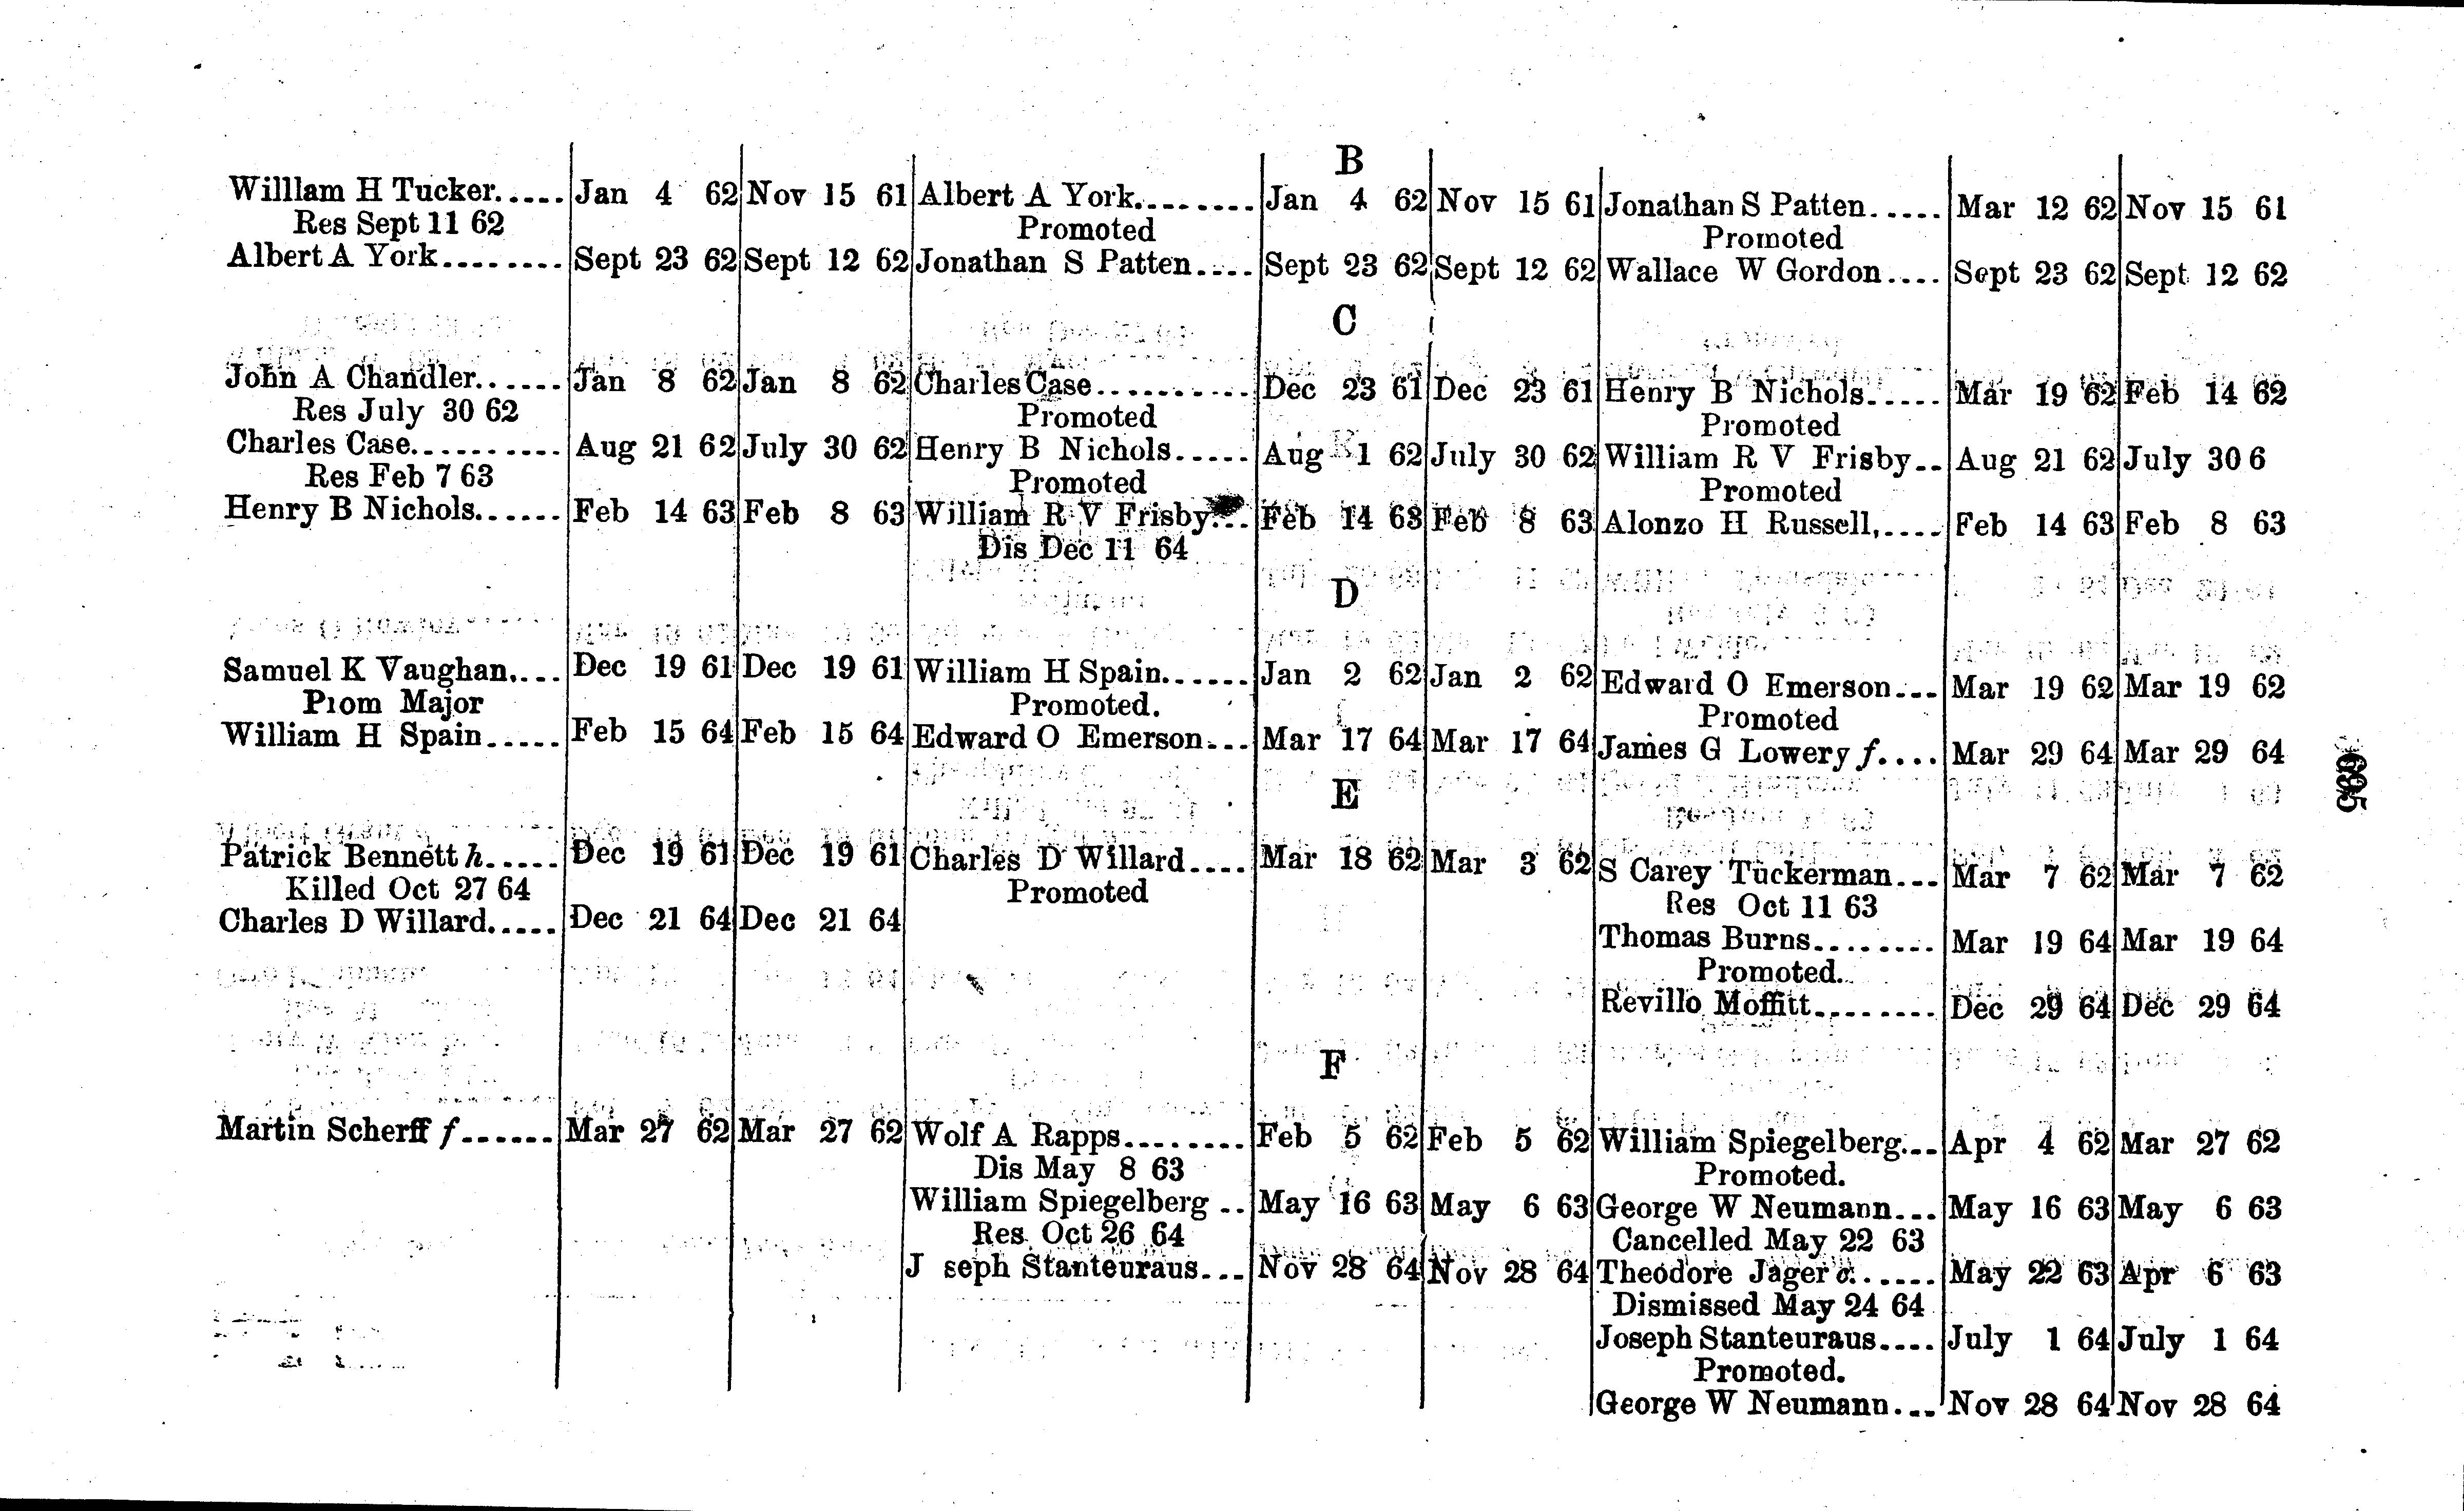 B
Willlam H Tucker..... Jan 4 62 Nov 15 61 Albert A York........ Jan 4 62 Nov 15 61 Jonathan S Patten..... Mar 12 62 Nov 15 61
Res Sept 11 62 Promoted Promoted
Albert A York........ Sept 23 62 Sept 12 62 Jonathan S Patten.... Sept 23 62 Sept 12 62 Wallace W Gordon.... Sept 23 62 Sept 12 62
C
John A Chandler...... Jan 8 62 Jan 8 62 Charles Case.......... Dec 23 61 Dec 23 61 Henry B Nichols..... Mar 19 62 Feb 14 62
Res July 30 62 Promoted Promoted
Charles Case.......... Aug 21 62 July 30 62 Henry B Nichols..... Aug 1 62 July 30 62 William R V Frisby.. Aug 21 62 July 30 6
Res Feb 7 63 Promoted Promoted
Henry B Nichols...... Feb 14 63 Feb 8 63 William R V Frisby... Feb 14 63 Feb 8 63 Alonzo H Russell,.... Feb 14 63 Feb 8 63
Dis Dec 11 64
D
Samuel K Vaughan.... Dec 19 61 Dec 19 61 William H Spain...... Jan 2 62 Jan 2 62 Edward O Emerson... Mar 19 62 Mar 19 62
Prom Major Promoted. Promoted
William H Spain..... Feb 15 64 Feb 15 64 Edward O Emerson... Mar 17 64 Mar 17 64 James G Lowery f.... Mar 29 64 Mar 29 64
695
E
Patrick Bennett h..... Dec 19 61 Dec 19 61 Charles D Willard.... Mar 18 62 Mar 3 62 S Carey Tuckerman... Mar 7 62 Mar 7 62
Killed Oct 27 64 Promoted Res Oct 11 63
Charles D Willard..... Dec 21 64 Dec 21 64 Thomas Burns........ Mar 19 64 Mar 19 64
Promoted.
Revillo Moffitt........ Dec 29 64 Dec 29 64
F
Martin Scherff f...... Mar 27 62 Mar 27 62 Wolf A Rapps........ Feb 5 62 Feb 5 62 William Spiegelberg... Apr 4 62 Mar 27 62
Dis May 8 63 Promoted.
William Spiegelberg .. May 16 63 May 6 63 George W Neumann... May 16 63 May 6 63
Res Oct 26 64 Cancelled May 22 63
J seph Stanteuraus... Nov 28 64 Nov 28 64 Theodore Jager c...... May 22 63 Apr 6 63
Dismissed May 24 64
Joseph Stanteuraus.... July 1 64 July 1 64
Promoted.
George W Neumann... Nov 28 64 Nov 28 64